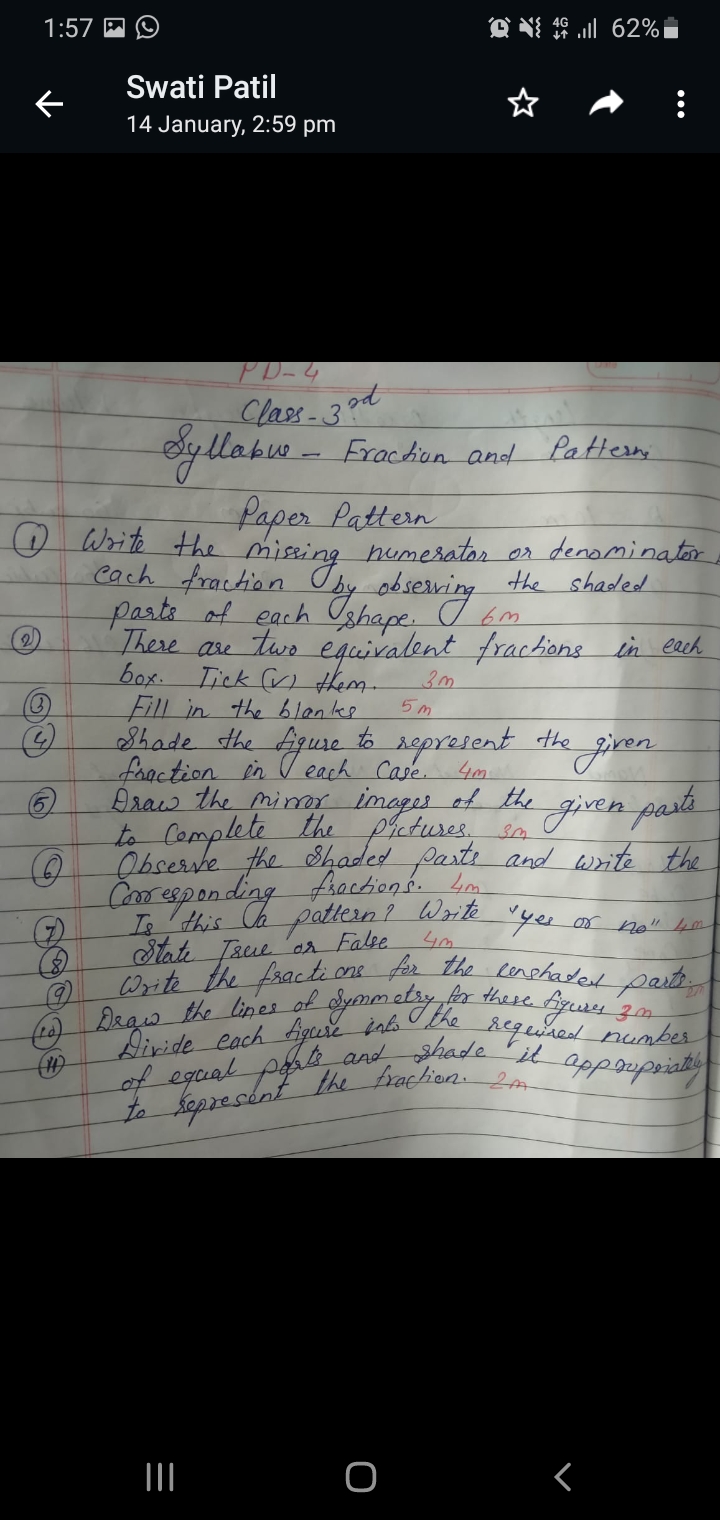 1:57 4G 62%
Swati Patil
14 January, 2:59 pm
PD-4
Class - 3rd
Syllabus - Fraction and Patterns
Paper Pattern
① Write the missing numerator or denominator
each fraction by observing the shaded
parts of each shape. 6m
② There are two equivalent fractions in each
box. Tick (✓) them. 3m
③ Fill in the blanks 5m
④ Shade the figure to represent the given
fraction in each case. 4m
⑤ Draw the mirror images of the given parts
to Complete the pictures. 3m
⑥ Observe the Shaded parts and write the
Corresponding fractions. 4m
⑦ Is this a pattern? Write "yes or no" 4m
⑧ State True or False 4m
⑨ Write the fractions for the unshaded parts.
⑩ Draw the lines of symmetry for these figures 3m
⑪ Divide each figure into the required number
of equal parts and shade it appropriately
to represent the fraction. 2m